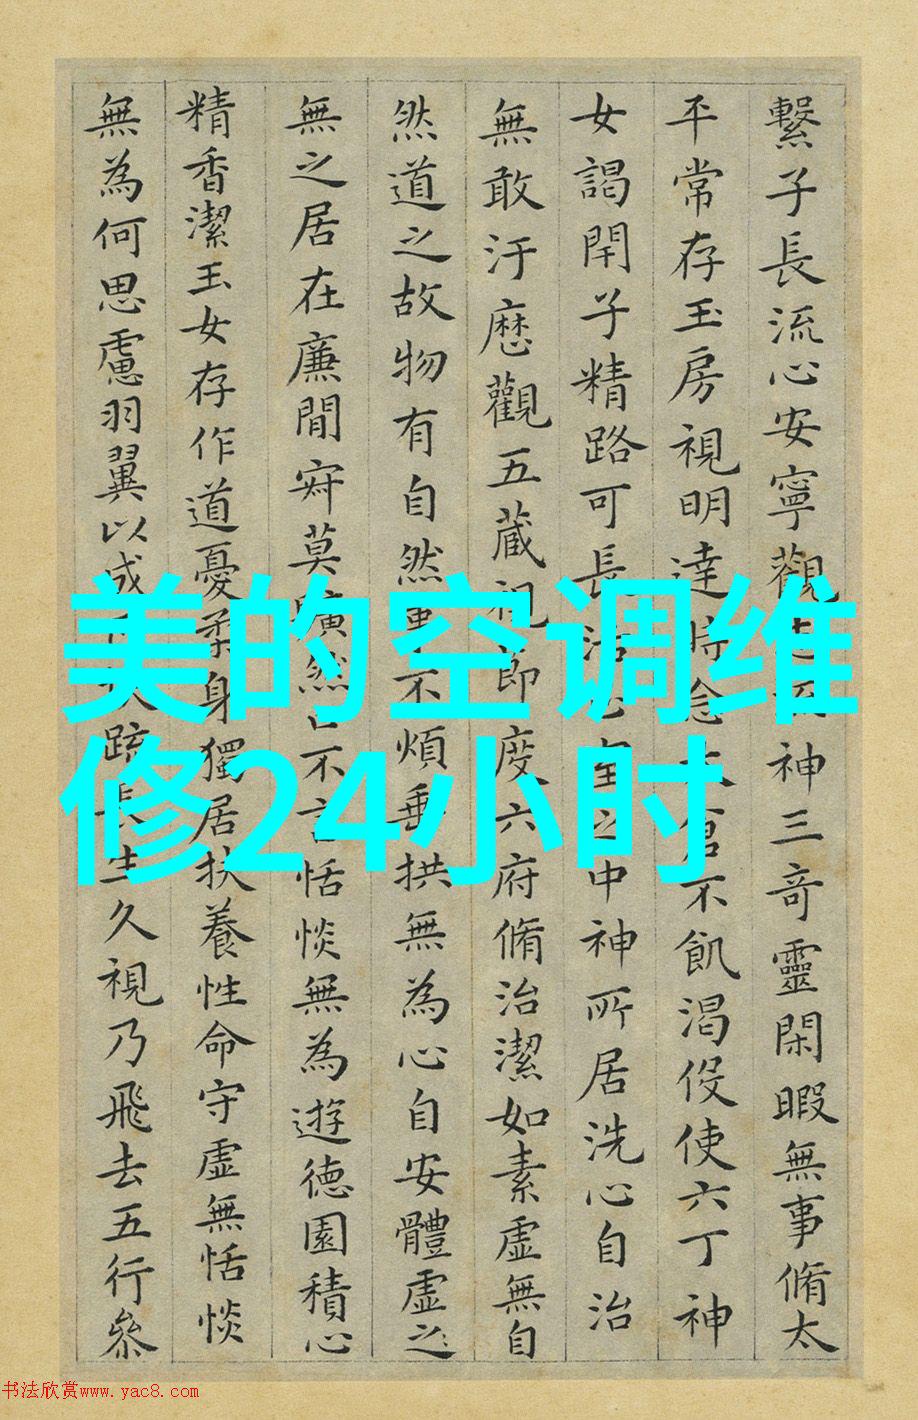 繫子長流心安寧觀神三奇靈閑暇無事脩太
平常存玉房視明達時念倉不飢渴伇使六丁神
女謁閇子精路可長活之中神所居洗心自治
無敢汙歷觀五藏視節度六府脩治潔如素虛無自
然道之故物有自然事不煩垂拱無為心自安體虛之
無之居在廉間寂莫曠然口不言恬惔無為遊德園積心
精香潔玉女存作道憂柔身獨居扶養性命守虛無恬惔
無為何思慮羽翼以成疏長生久視乃飛去五行參
美的空调维
修24小时
书法欣赏www.yac8.com